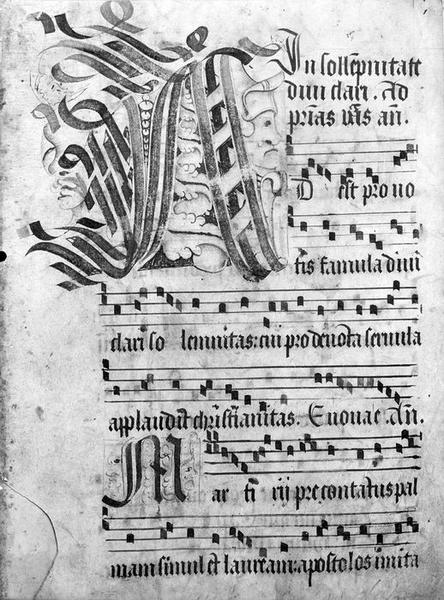 In sollēpnitate
diui clari . Ad
pr̄ias v̄rs an̄.
AD est pro uo
tis famula diui
clari so lemnitas: cui pro deuota seruula
applaudit christianitas. Euouae An̄.
Mar ti rij precontatus pal
mam simul et lauream: apostolos imita